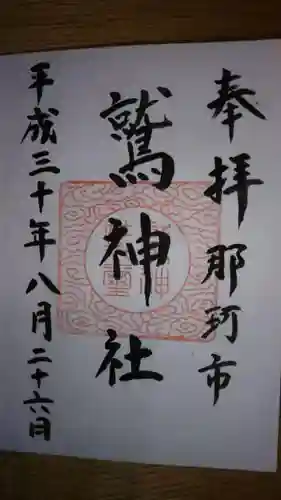 奉拝那珂市
鷲神社
平成三十年八月二十六日